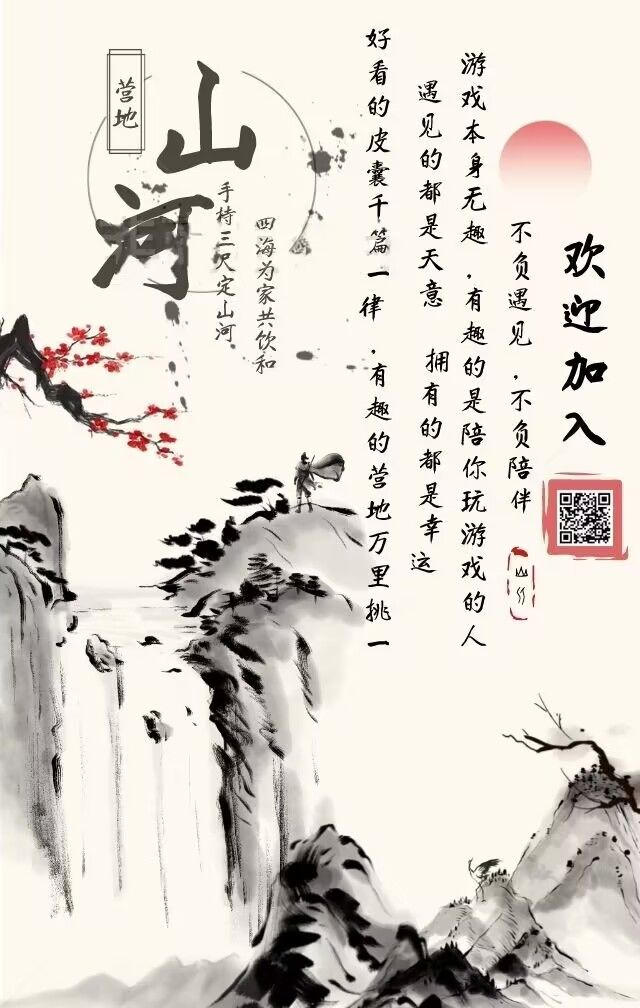 欢迎加入
不负遇见，不负陪伴
游戏本身无趣，有趣的是陪你玩游戏的人
遇见的都是天意 拥有的都是幸运
好看的皮囊千篇一律，有趣的营地万里挑一
营地
山河
四海为家共饮和
手持三尺定山河